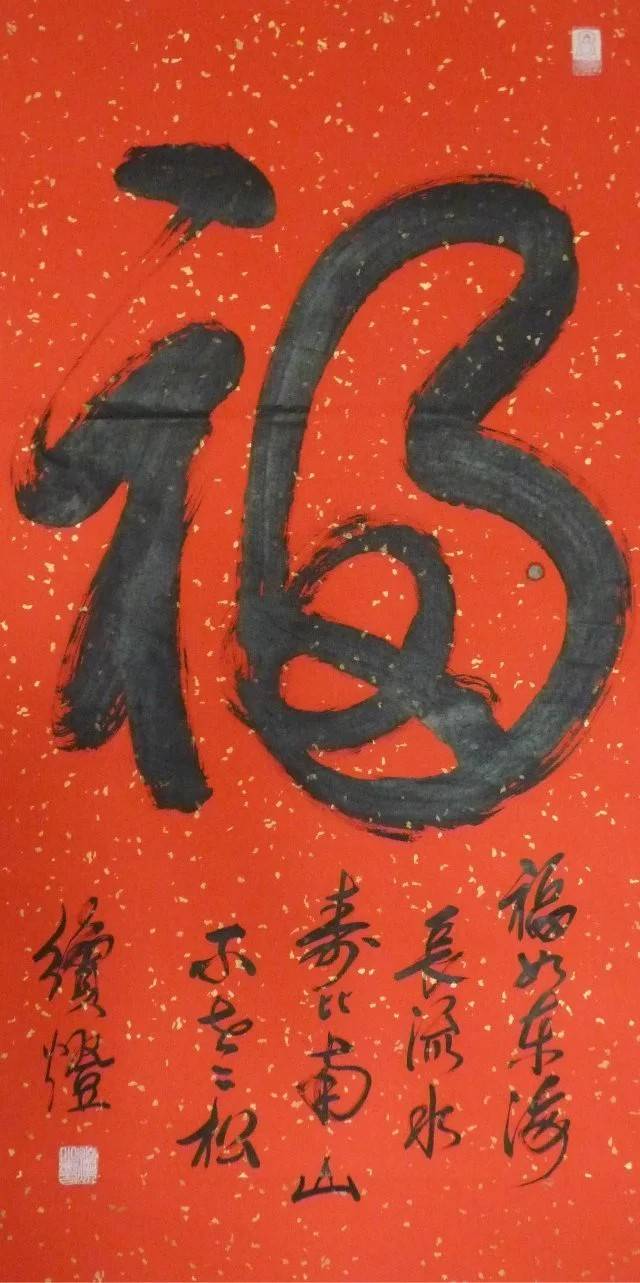 福
福如东海
長流水
寿比南山
不老松
續燈